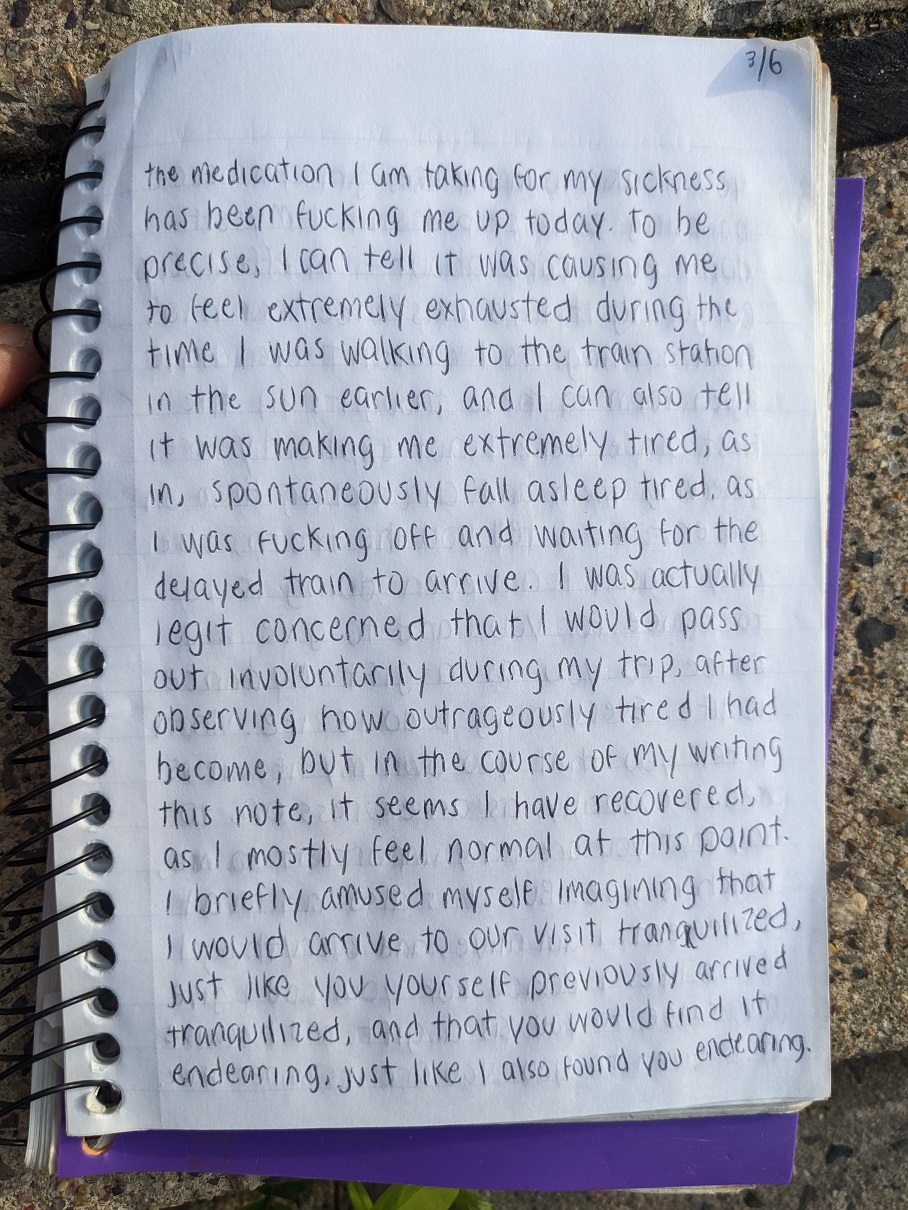 3/6
the medication I am taking for my sickness
has been fucking me up today. to be
precise, I can tell it was causing me
to feel extremely exhausted during the
time I was walking to the train station
in the sun earlier, and I can also tell
it was making me extremely tired, as
in, spontaneously fall asleep tired, as
I was fucking off and waiting for the
delayed train to arrive. I was actually
legit concerned that I would pass
out involuntarily during my trip, after
observing how outrageously tired I had
become, but in the course of my writing
this note, it seems I have recovered,
as I mostly feel normal at this point.
I briefly amused myself imagining that
I would arrive to our visit tranquilized,
just like you yourself previously arrived
tranquilized, and that you would find it
endearing, just like I also found you endearing.